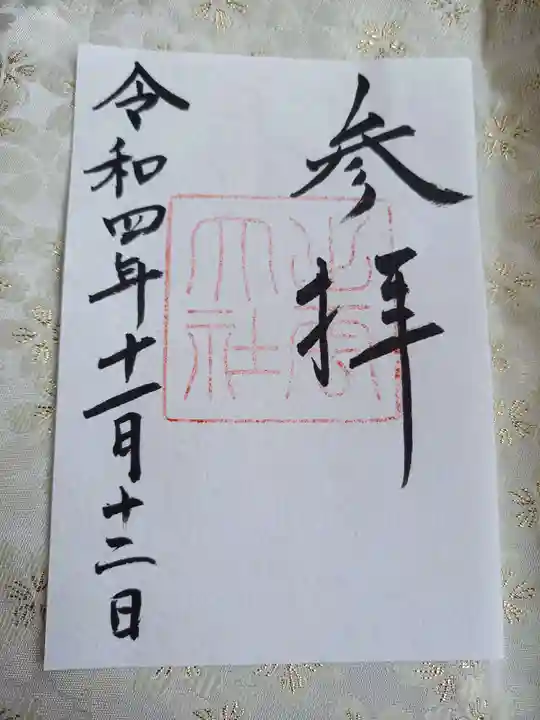 参拝
大社
令和四年十一月十二日